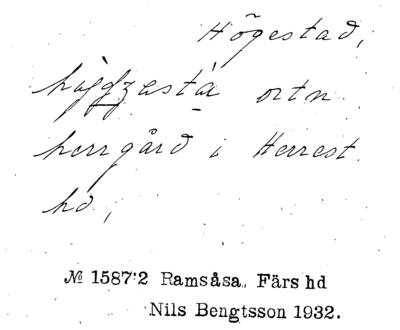 Högestad,
ortn
herrgård i Herrest
hd,
№ 1587:2 Ramsåsa, Färs hd
Nils Bengtsson 1932.